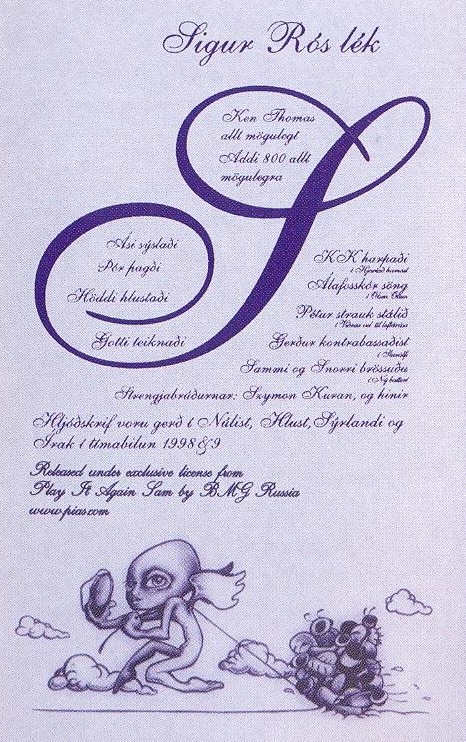 Sigur Rós lék
Ken Thomas
allt mögulegt
Addi 800 allt
mögulegra
Ási sýslaði
Þór þagði
Höddi hlustaði
Gotti teiknaði
KK harpaði
í Hjartað hamast
Álafosskór söng
í Olsen Olsen
Pétur strauk stálið
í Viðrar vel til loftárása
Gerður kontrabassadist
í Starálfi
Sammi og Snorri brössuðu
í Ný batterí
Strengjabrúðurnar; Szymon Kuran, og hinir
Hljóðskrif voru gerð í Núlist, Hlust, Sýrlandi og
Írak í tímabilun 1998&9
Released under exclusive license from
Play It Again Sam by BMG Russia
www.pias.com